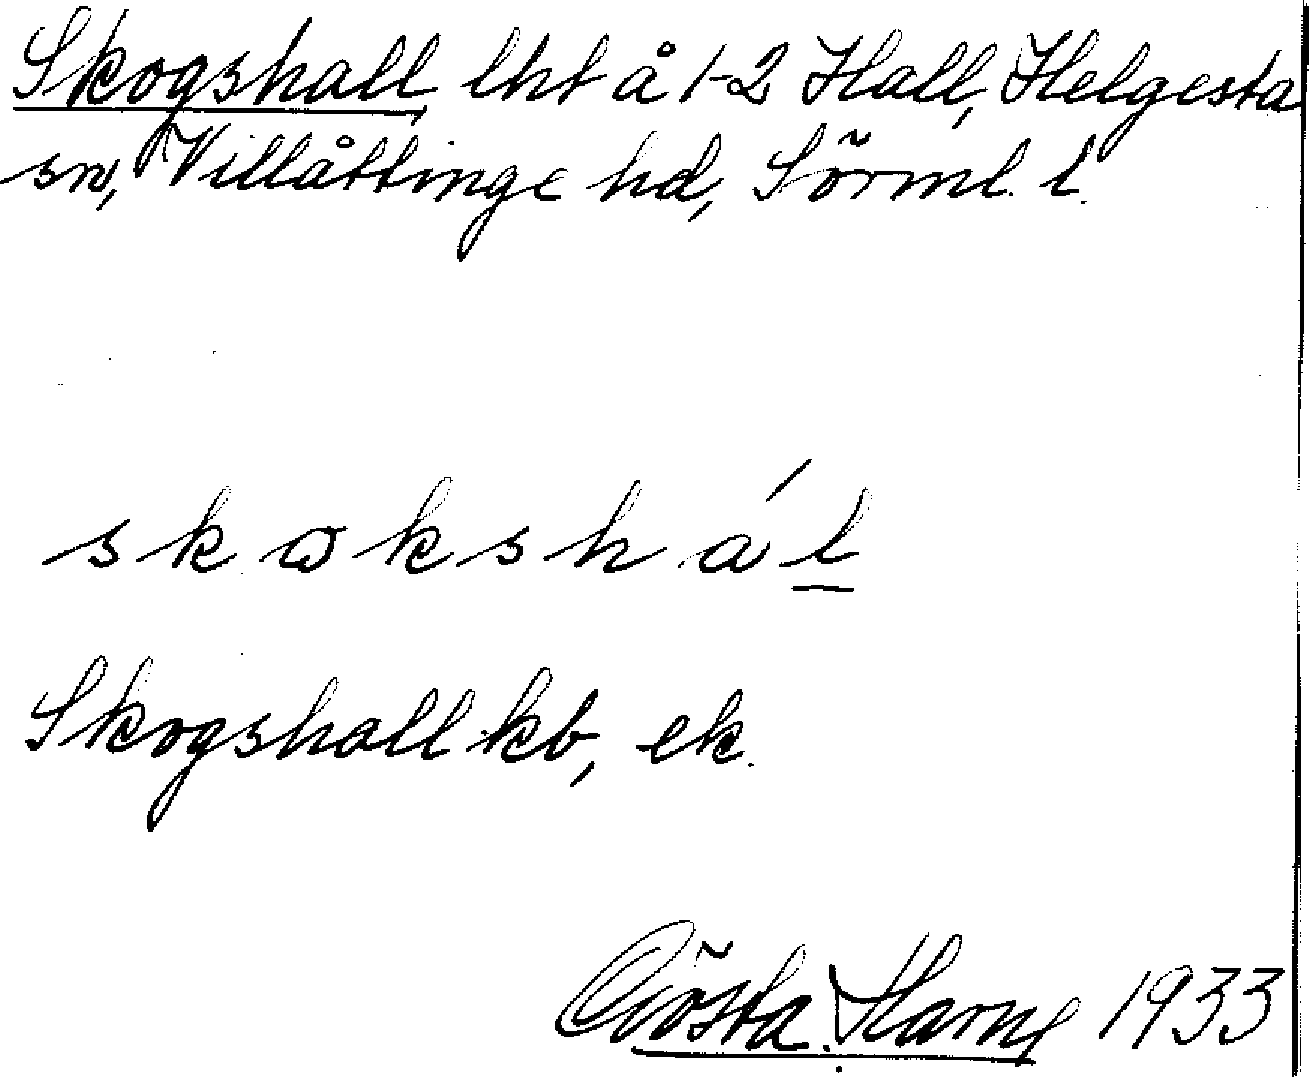 Skogshall, lht å 1-2 Hall, Helgesta
sn, Villåttinge hd, Sörml. l.
skωkshál
Skogshall kb, ek.
Gösta Harne 1933